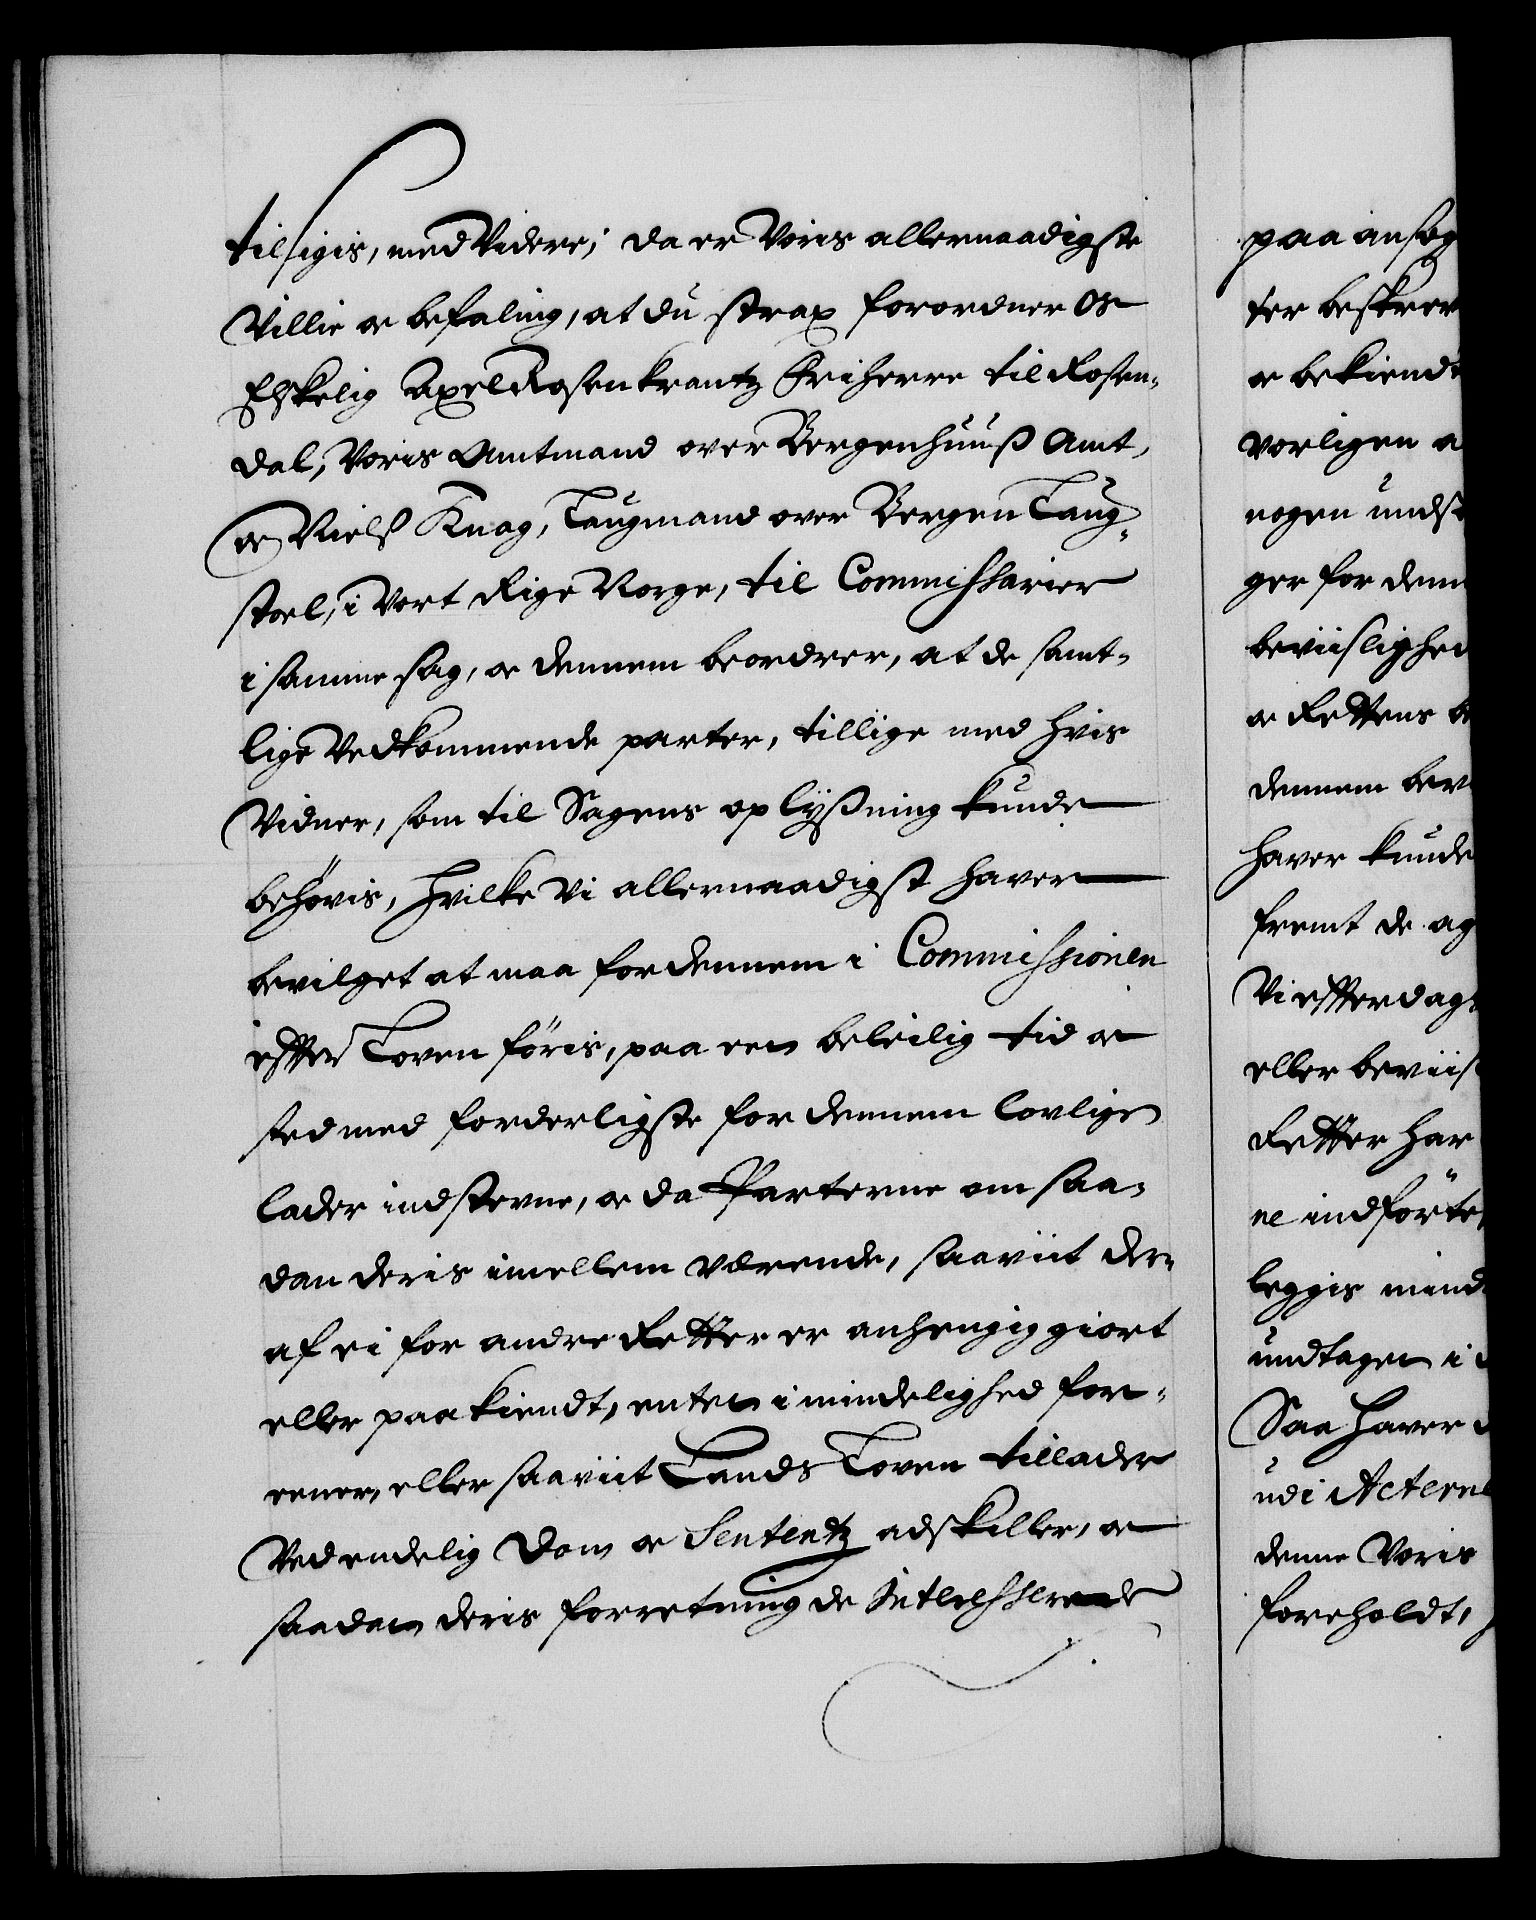 tilsigis, med Videre; da er Voris allernaadigste
Villie oc befaling, at du strax forordner Os
Elskelig Axel Rosenkrantz Friherre til Rosen-
dal, Voris Amtmand over Bergenhuuß Amt,
oc Niels Knag, Laugmand over Bergen Laug-
stoel, i Vort Rige Norge, til Commissarier
i samme sag, oc dennem beordrer, at de samt-
lige Vedkommende parter, tillige med hvis
Vidner, som til Sagens oplyßning kunde
behøvis, hvilke Vi allernaadigst haver
bevilget at maa for dennem i Commissionen
effter Loven føris, paa een beleilig tid oc
sted med forderligste for dennem lovlige
lader indsterne, oc da Parterne om saa-
dan deris imellem verende, saaviit der-
af ei for andre Retter er anhengig giort
eller paakiendt, enten i mindelighed for-
eener, eller saaviit Lands Loven tillader
Ved endelig Dom oc Sententz adskiller, oc
saadan deris forretning de Interesserende
paa ansøg
ter beskrev
oc bekiendt
vorligen a
nogen undsk
ger for denn
beviislighed
oc Rettens be
dennem bev
haver kunde
fremt de ag
Vi effterdags
eller beviis
Retter har
ne indførte
leggis mind
undtagen i
Saa haver d
udi Acterne
denne Voris
foreholdt,